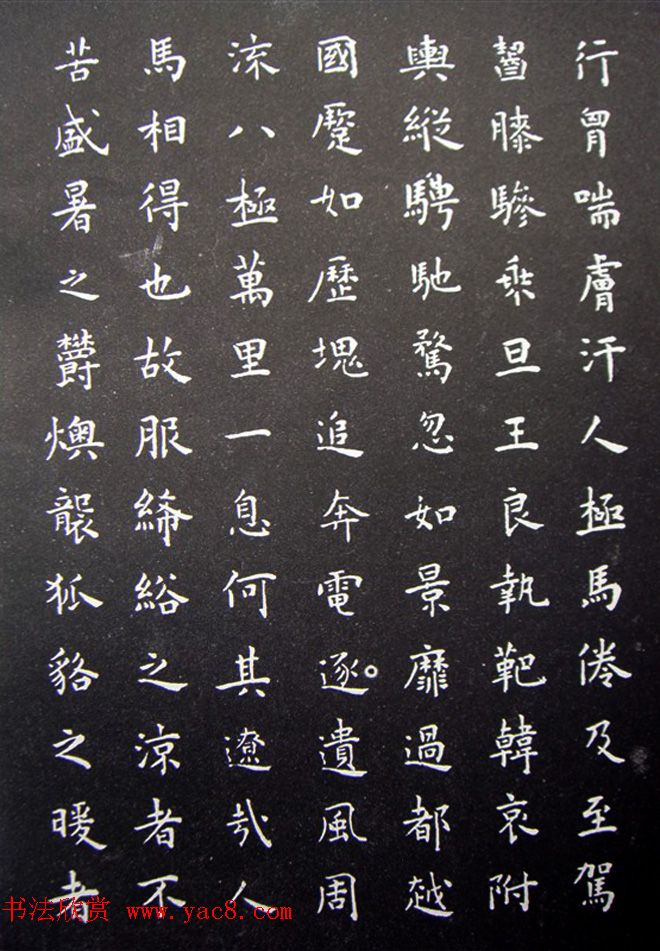 行胷喘膚汗人極馬倦及至駕
齧膝驂乗旦王良執靶韓哀附
輿縱騁馳騖忽如景靡過都越
國蹷如歷塊追奔電逐遺風周
流八極萬里一息何其遼哉人
馬相得也故服絺綌之涼者不
苦盛暑之欝燠襲狐貉之暖者
书法欣赏 www.yac8.com